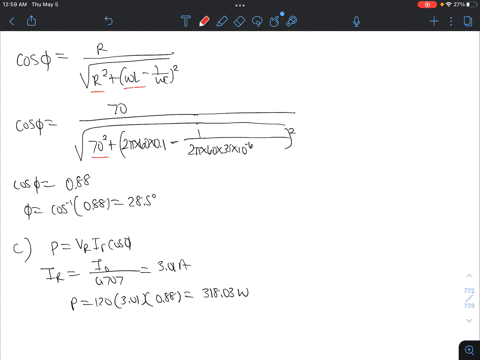 12:59 AM Thu May 5
27%
cosφ = R / √(R² + (ωL − 1/ωC)²)
cosφ = 70 / √(70² + (2π×60×0.1 − 1/(2π×60×35×10⁻⁶))²)
cosφ = 0.88
φ = cos⁻¹(0.88) = 28.5°
c) P = V_R I_r cosφ
I_R = I_0 / 0.707 = 3.01 A
P = 120 (3.01)(0.88) = 318.03 W
772
773